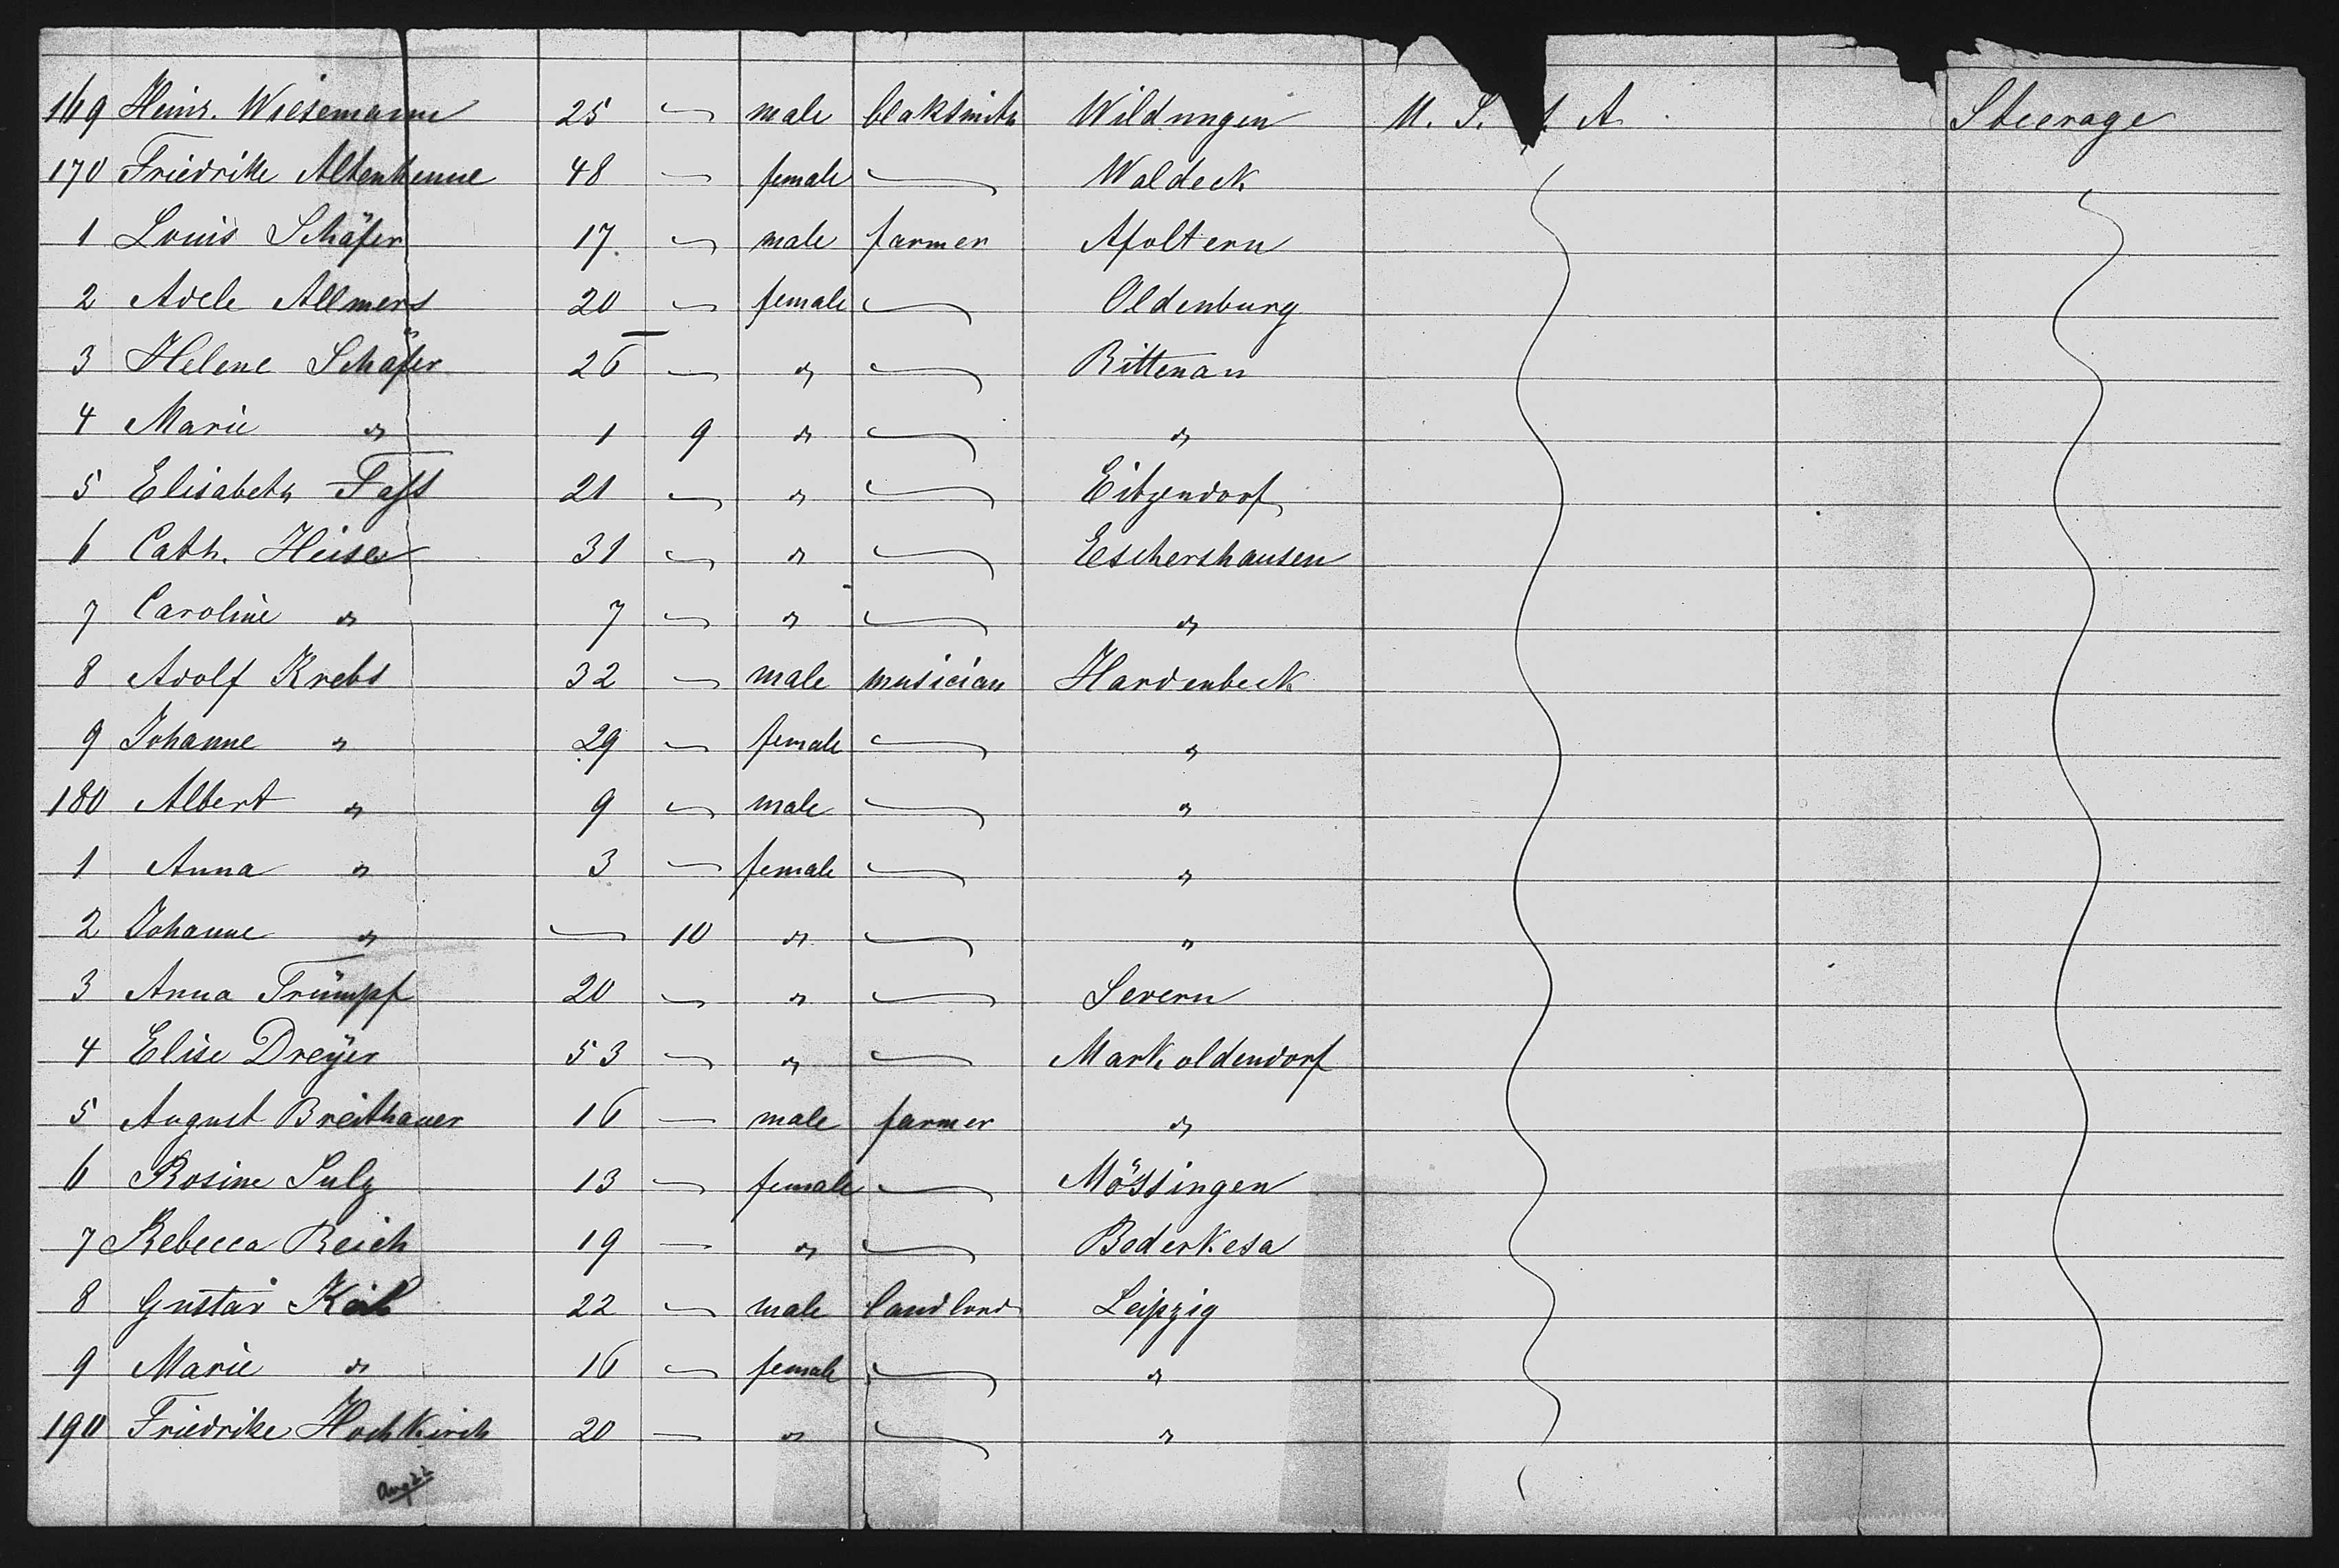 169 Heinr. Wiesemann 25 — male blaksmith Wildungen U. S. of A Steerage
170 Friedrike Altenhenne 48 — female — Waldeck
1 Louis Schäfer 17 — male farmer Afoltern
2 Adele Allmers 20 — female — Oldenburg
3 Helene Schäfer 26 — " — Rittenau
4 Marie " 1 9 " — "
5 Elisabeth Fast 21 — " — Eitzendorf
6 Cath. Heise 31 — " — Eeschershausen
7 Caroline " 7 — " — "
8 Adolf Krebs 32 — male musician Hardenbeck
9 Johanne " 29 — female — "
180 Albert " 9 — male — "
1 Anna " 3 — female — "
2 Johanne " — 10 " — "
3 Anna Trümpf 20 — " — Severn
4 Elise Dreÿer 53 — " — Markoldendorf
5 August Breithauer 16 — male farmer "
6 Rosine Sulz 13 — female — Mössingen
7 Rebecca Reich 19 — " — Bederkesa
8 Gustav Keil 22 — male landlord Leipzig
9 Marie " 16 — female — "
190 Friedrike Hochkirch 20 — " — "
Aug 22